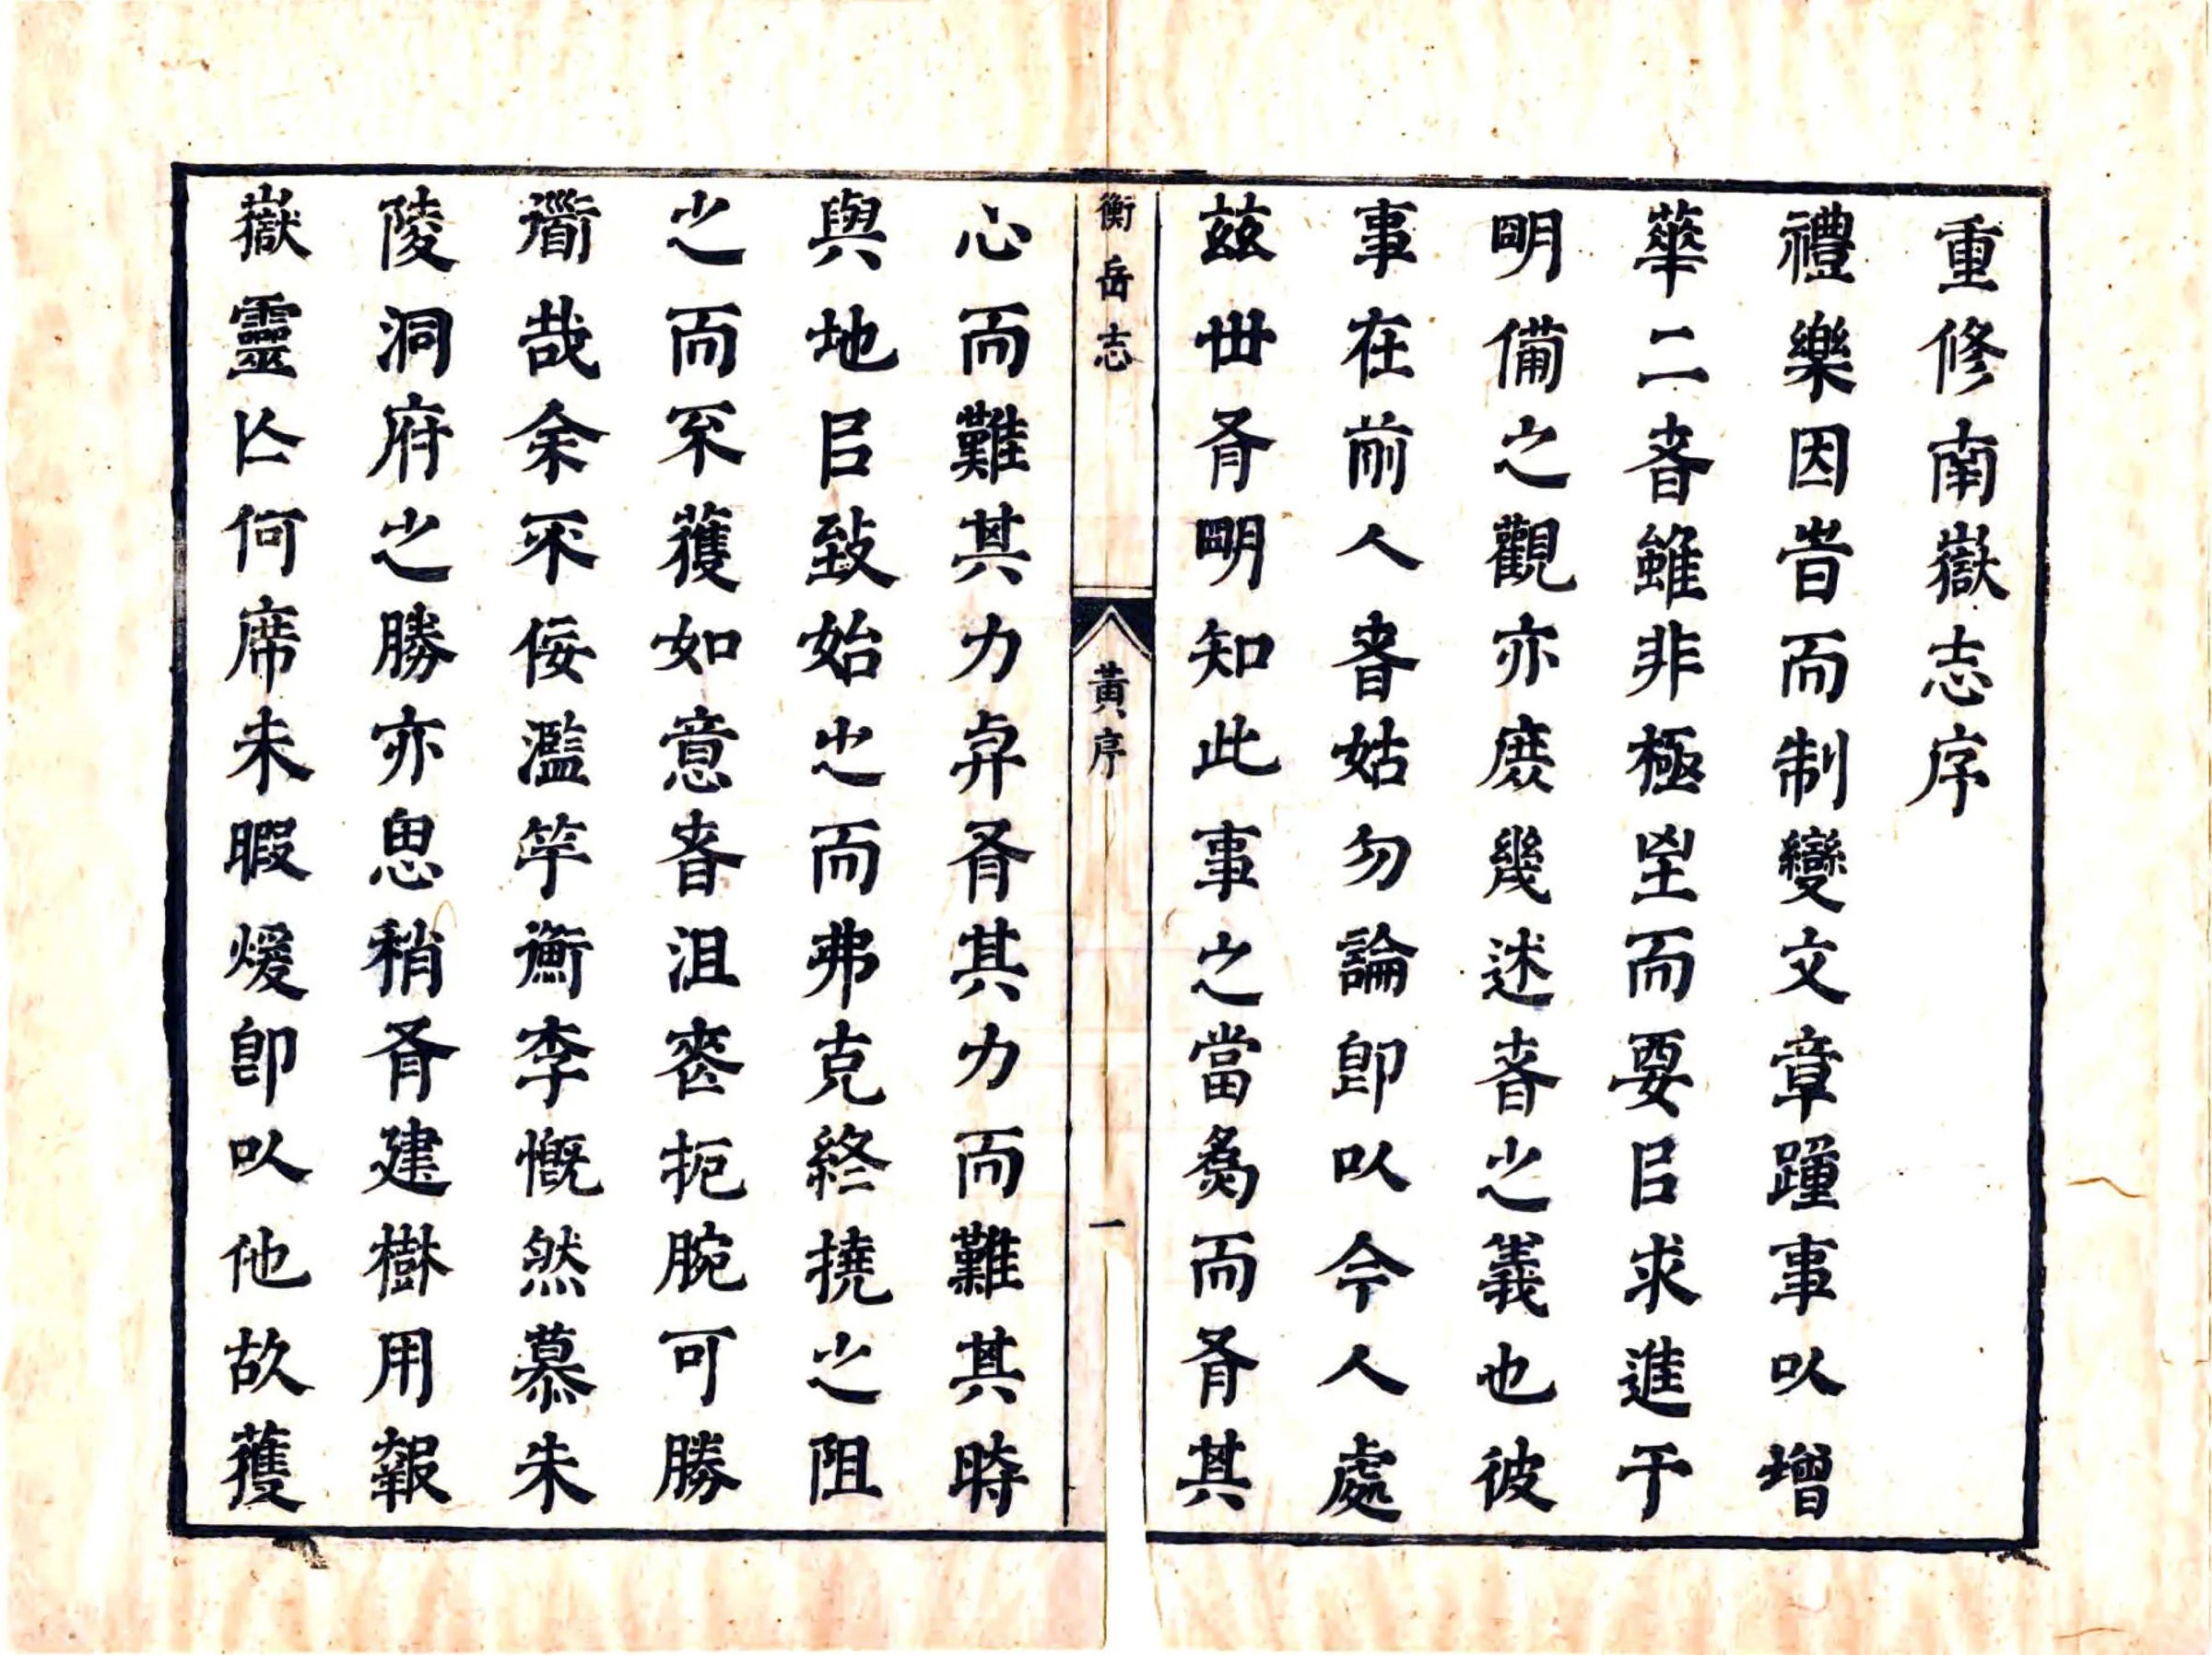 重修南嶽志序
禮樂因旹而制變文章踵事以增
華二者雖非極坒而要㠯求進于
明備之觀亦庶幾述者之義也彼
事在前人者姑勿論卽以今人處
茲世有明知此事之當為而有其
衡岳志
黃序
一
心而難其力弃有其力而難其時
與地㠯致始之而弗克終撓之阻
之而不獲如意者沮喪扼腕可勝
道哉余不佞濫竽衡李慨然慕朱
陵洞府之勝亦思稍有建樹用報
嶽靈亾何席未暇煖卽以他故獲